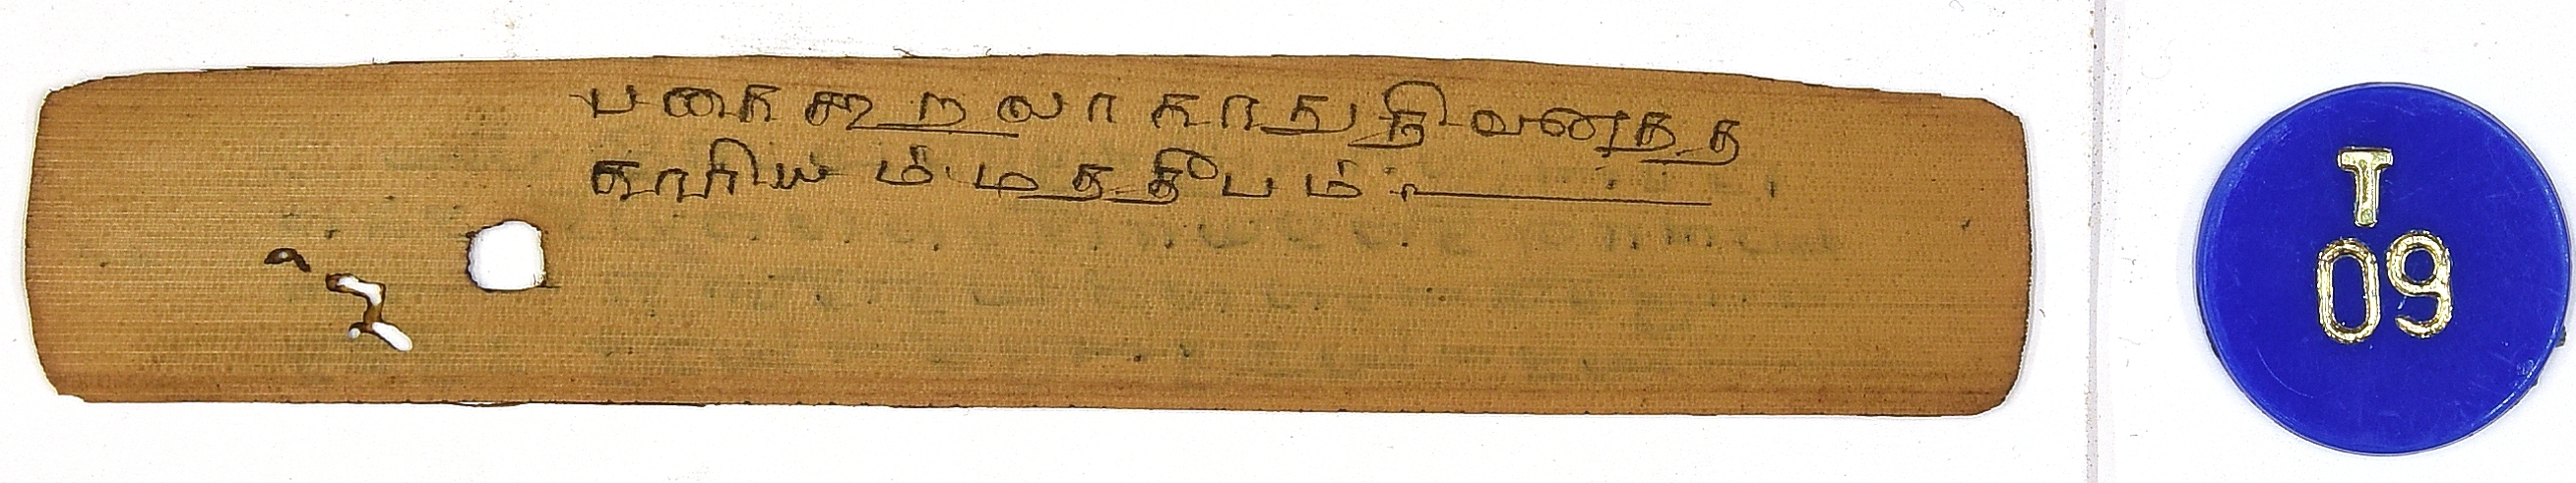 பகைகூறலாகாதுதிவணைத்த
காரியம்மத்தீபம்
T
09